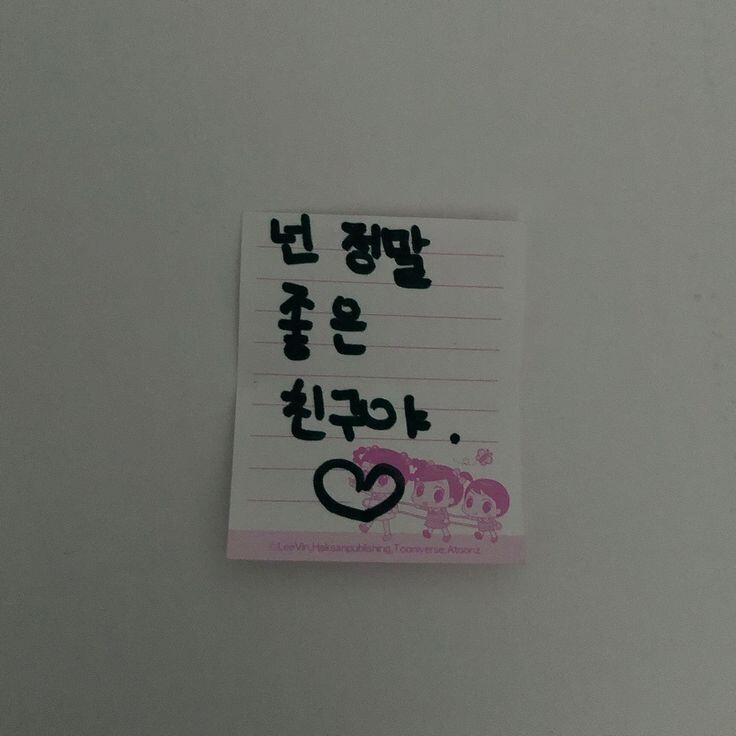 넌 정말
좋은
친구야.
©LeeVin,Haksanpublishing,Tooniverse,Atoonz